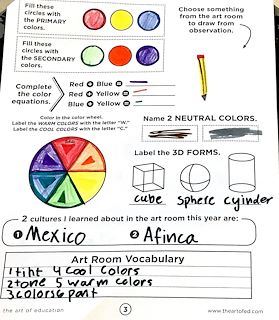 Fill these
circles with
the PRIMARY
colors.
Fill these
circles with
the SECONDARY
colors.
Choose something
from the art room
to draw from
observation.
Complete
the color
equations.
Red + Blue =
Red + Yellow =
Blue + Yellow =
Color in the color wheel.
Label the WARM COLORS with the letter "W."
Label the COOL COLORS with the letter "C."
Name 2 NEUTRAL COLORS.
Label the 3D FORMS.
cube sphere cyinder
2 cultures I learned about in the art room this year are:
1 Mexico
2 Afinca
Art Room Vocabulary
1 tiht 4 Cool Colors
2 tone 5 warm colors
3 colors 6 pant
the art of education
3
www.theartofed.com